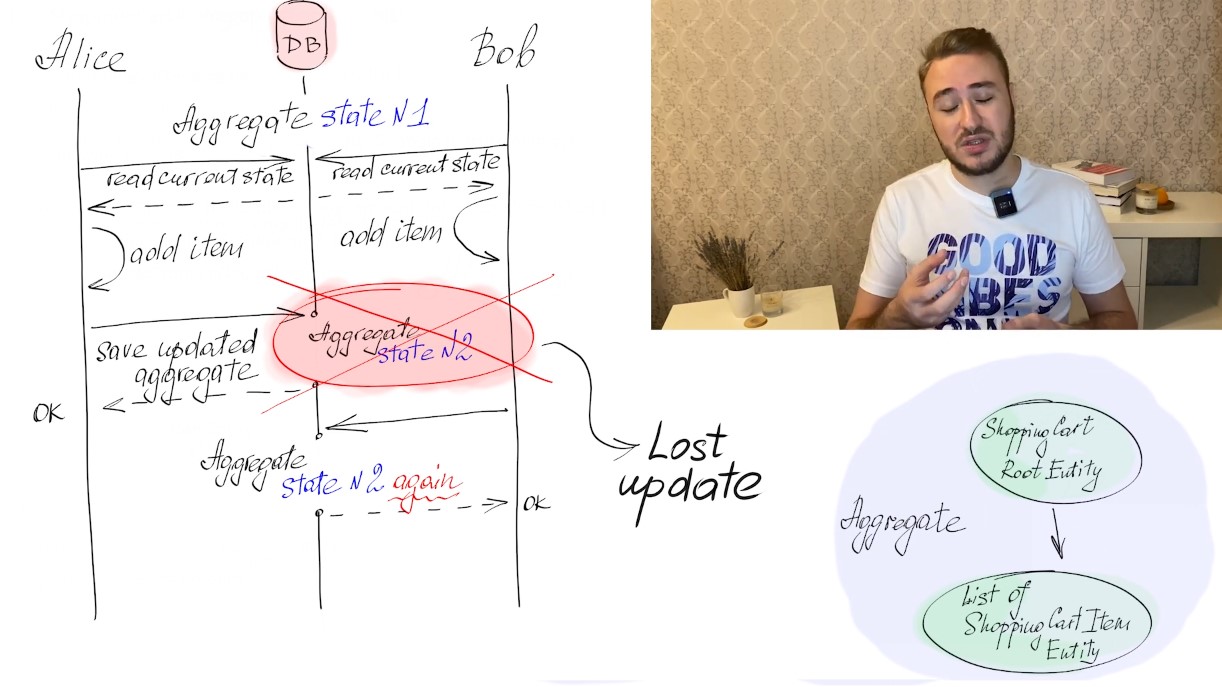 Alice
DB
Bob
Aggregate state N1
read current state
read current state
add item
add item
Aggregate
state N2
save updated
aggregate
OK
Aggregate
state N2 again
OK
Lost
update
GOOD
Shopping Cart
Root Entity
Aggregate
List of
Shopping Cart Item
Entity